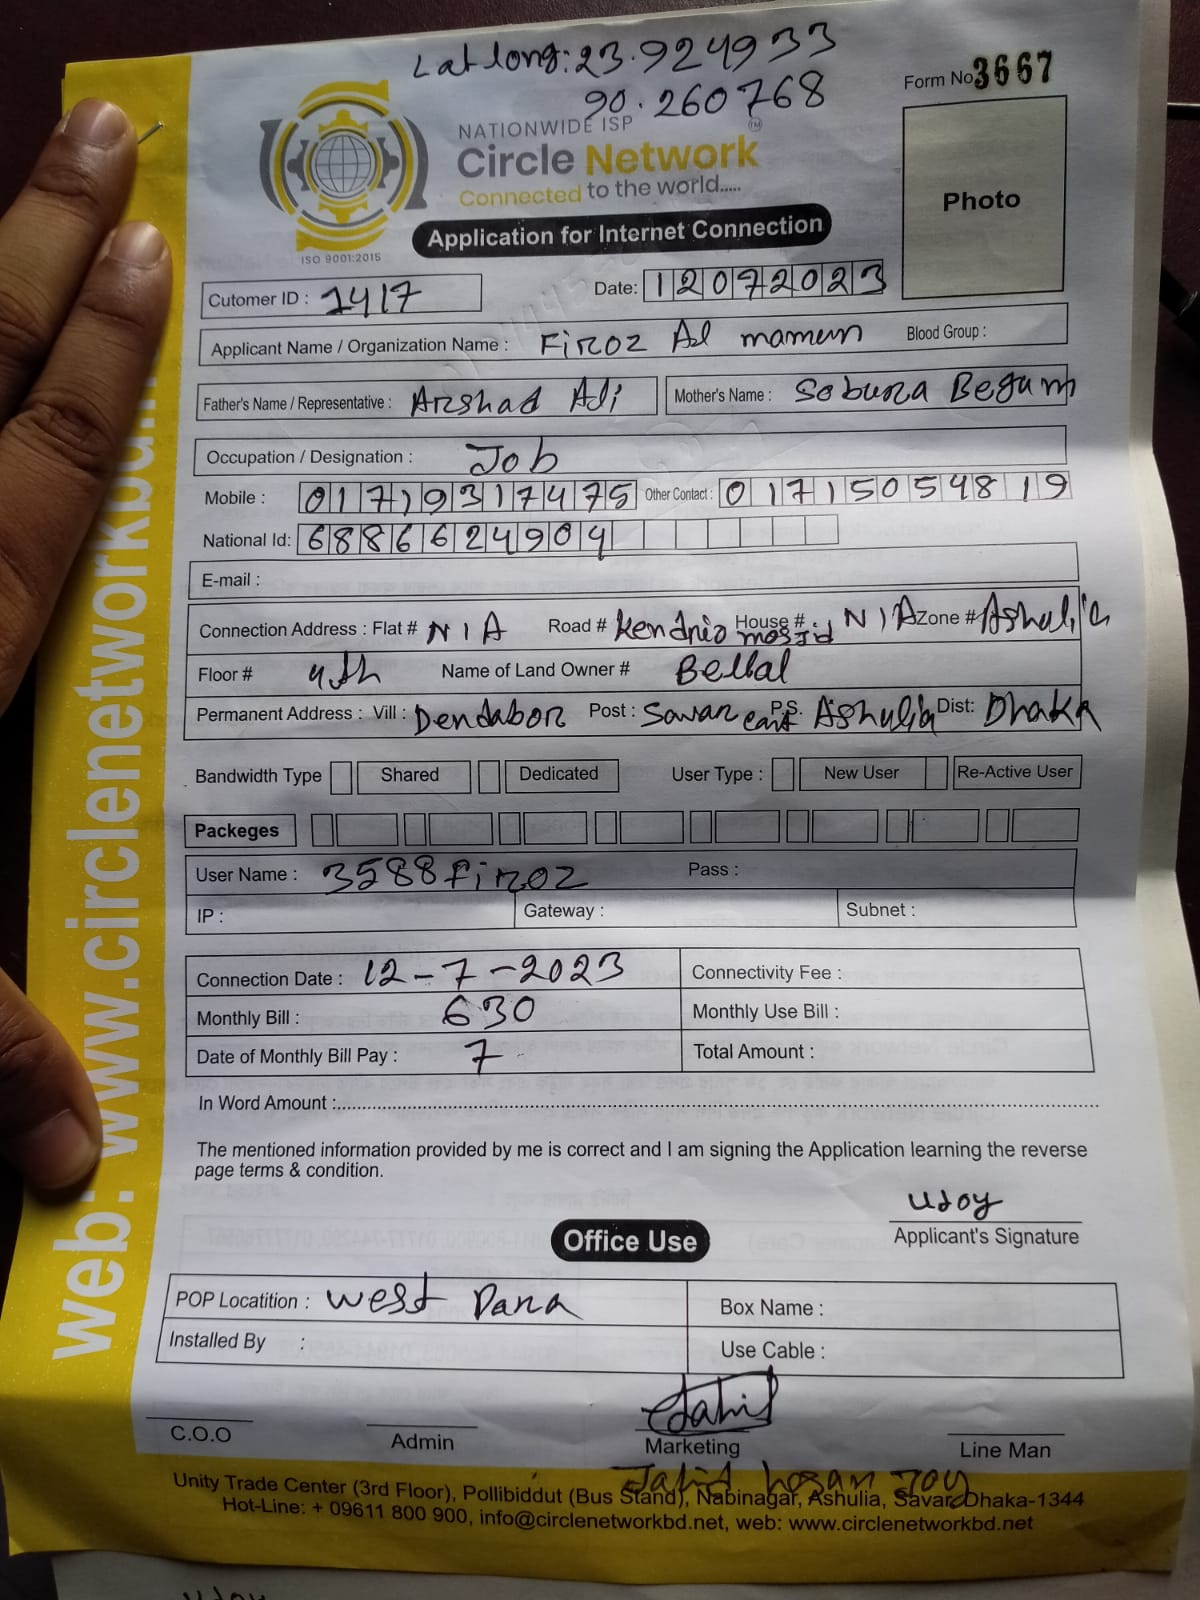 Lat long: 23.924933
90.260768
Form No 3667
NATIONWIDE ISP
Circle Network TM
Connected to the world.....
ISO 9001:2015
Photo
Application for Internet Connection
Cutomer ID : 1417
Date: 12072023
Applicant Name / Organization Name : Firoz Al mamun Blood Group :
Father's Name / Representative : Arshad Ali Mother's Name : Sobura Begum
Occupation / Designation : Job
Mobile : 01719317475 Other Contact : 01715054819
National Id: 6886624904
E-mail :
Connection Address : Flat # N/A Road # Kendrio mosjid House # : N/A Zone # Ashulia
Floor # 4th Name of Land Owner # Bellal
Permanent Address : Vill : Dendabor Post : Savar cant P.S. Ashulia Dist: Dhaka
Bandwidth Type Shared Dedicated User Type : New User Re-Active User
Packeges
User Name : 3588firoz Pass :
IP : Gateway : Subnet :
Connection Date : 12-7-2023 Connectivity Fee :
Monthly Bill : 630 Monthly Use Bill :
Date of Monthly Bill Pay : 7 Total Amount :
In Word Amount :
The mentioned information provided by me is correct and I am signing the Application learning the reverse
page terms & condition.
Udoy
Applicant's Signature
Office Use
POP Locatition : West Para Box Name :
Installed By : Use Cable :
Jahid
C.O.O Admin Marketing Line Man
Jahid hosan Joy
Unity Trade Center (3rd Floor), Pollibiddut (Bus Stand), Nabinagar, Ashulia, Savar, Dhaka-1344
Hot-Line: + 09611 800 900, info@circlenetworkbd.net, web: www.circlenetworkbd.net
web: www.circlenetworkbd.